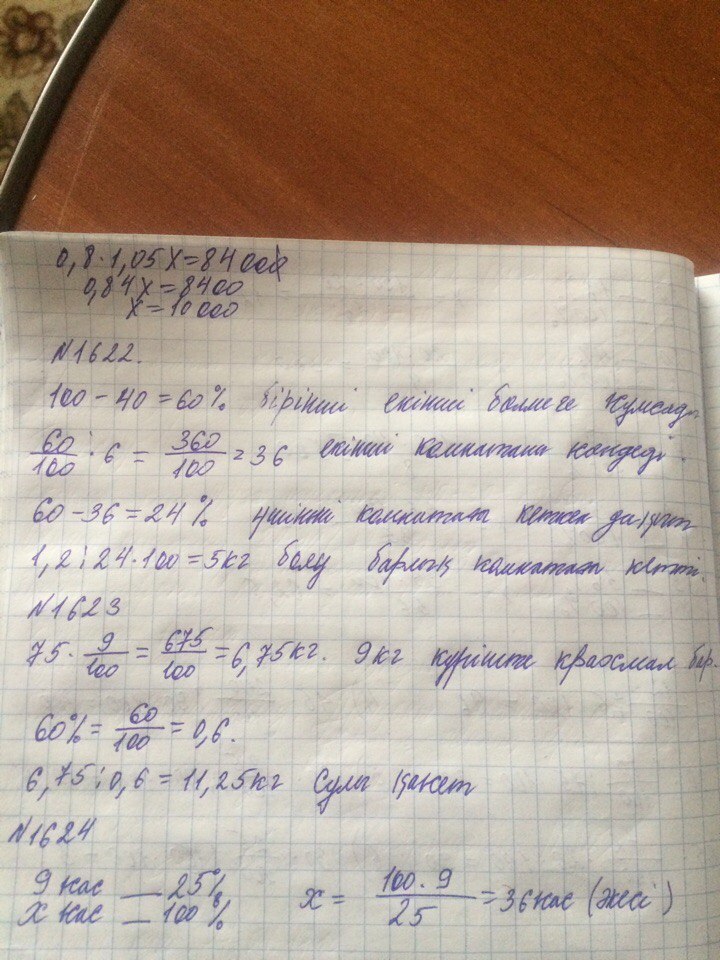 0,8·1,05x=8400
0,84x=8400
x=10000
N1622.
100-40=60% бірінші екінші бөлмеге жұмсады
60/100·6=360/100=36 екінші комнатаны
60-36=24% үшінші комнатаға кеткен
1,2:24·100=5кг бояу барлық комнатаға кетті.
N1623
75·9/100=675/100=6,75кг. 9кг күріште крахмал бар.
60%=60/100=0,6.
6,75:0,6=11,25кг сұлы қажет
N1624
9 жас — 25%
x жас — 100%
x=100·9/25=36 жас (әкесі)